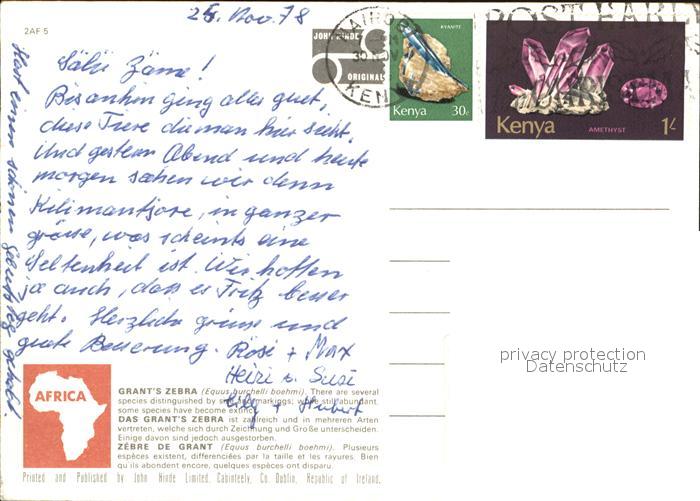 25. Nov. 78
2AF 5
Sälü Zäme!
Bis anhin ging alles guet,
diese Tiere die man hier sieht.
Und gestern Abend und heute
morgen sahen wir denn
Kilimantjore, in ganzer
grösse, was scheints eine
Seltenheit ist. Wir hoffen
ja auch, dass es Fritz besser
geht. Herzliche grüsse und
guete Besserung. Rösi + Max
Heiri u. Susi
Lily + Hubert
Hast einen schönen Geburtstag gehabt
JOHN HINDE
ORIGINAL
NAIROBI
KENYA
KYANITE
Kenya 30c
POST EARLY
Kenya AMETHYST 1/-
privacy protection
Datenschutz
AFRICA
GRANT'S ZEBRA (Equus burchelli boehmi). There are several
species distinguished by size and markings; while still abundant,
some species have become extinct.
DAS GRANT'S ZEBRA ist zahlreich und in mehreren Arten
vertreten, welche sich durch Zeichnung und Größe unterscheiden.
Einige davon sind jedoch ausgestorben.
ZÈBRE DE GRANT (Equus burchelli boehmi). Plusieurs
espèces existent, différenciées par la taille et les rayures. Bien
qu'ils abondent encore, quelques espèces ont disparu.
Printed and Published by John Hinde Limited, Cabinteely, Co. Dublin, Republic of Ireland.